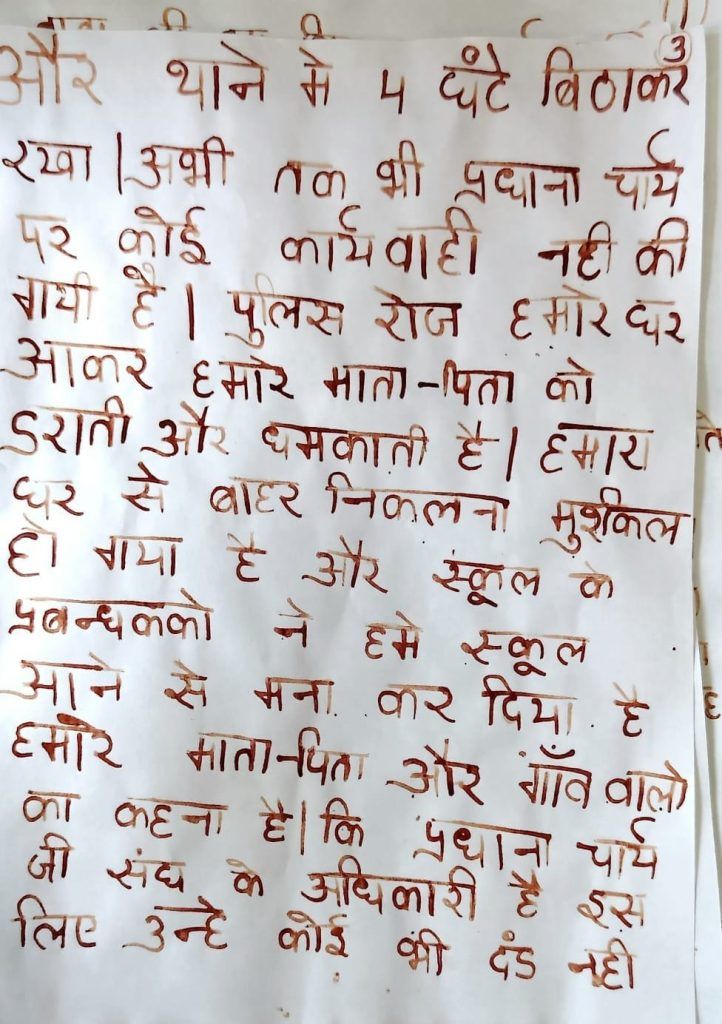 3
और थाने मे 4 घंटे बिठाकर
रखा | अभी तक भी प्रधाना चार्य
पर कोई कार्यवाही नही की
गयी है | पुलिस रोज हमारे घर
आकर हमारे माता-पिता को
डराती और धमकाती है | हमारा
घर से बाहर निकलना मुश्किल
हो गया है और स्कूल के
प्रबन्धकको ने हमे स्कूल
आने से मना कर दिया है
हमारे माता-पिता और गाँव वालो
का कहना है | कि प्रधाना चार्य
जी संघ के अधिकारी है इस
लिए उन्हे कोई भी दंड नही